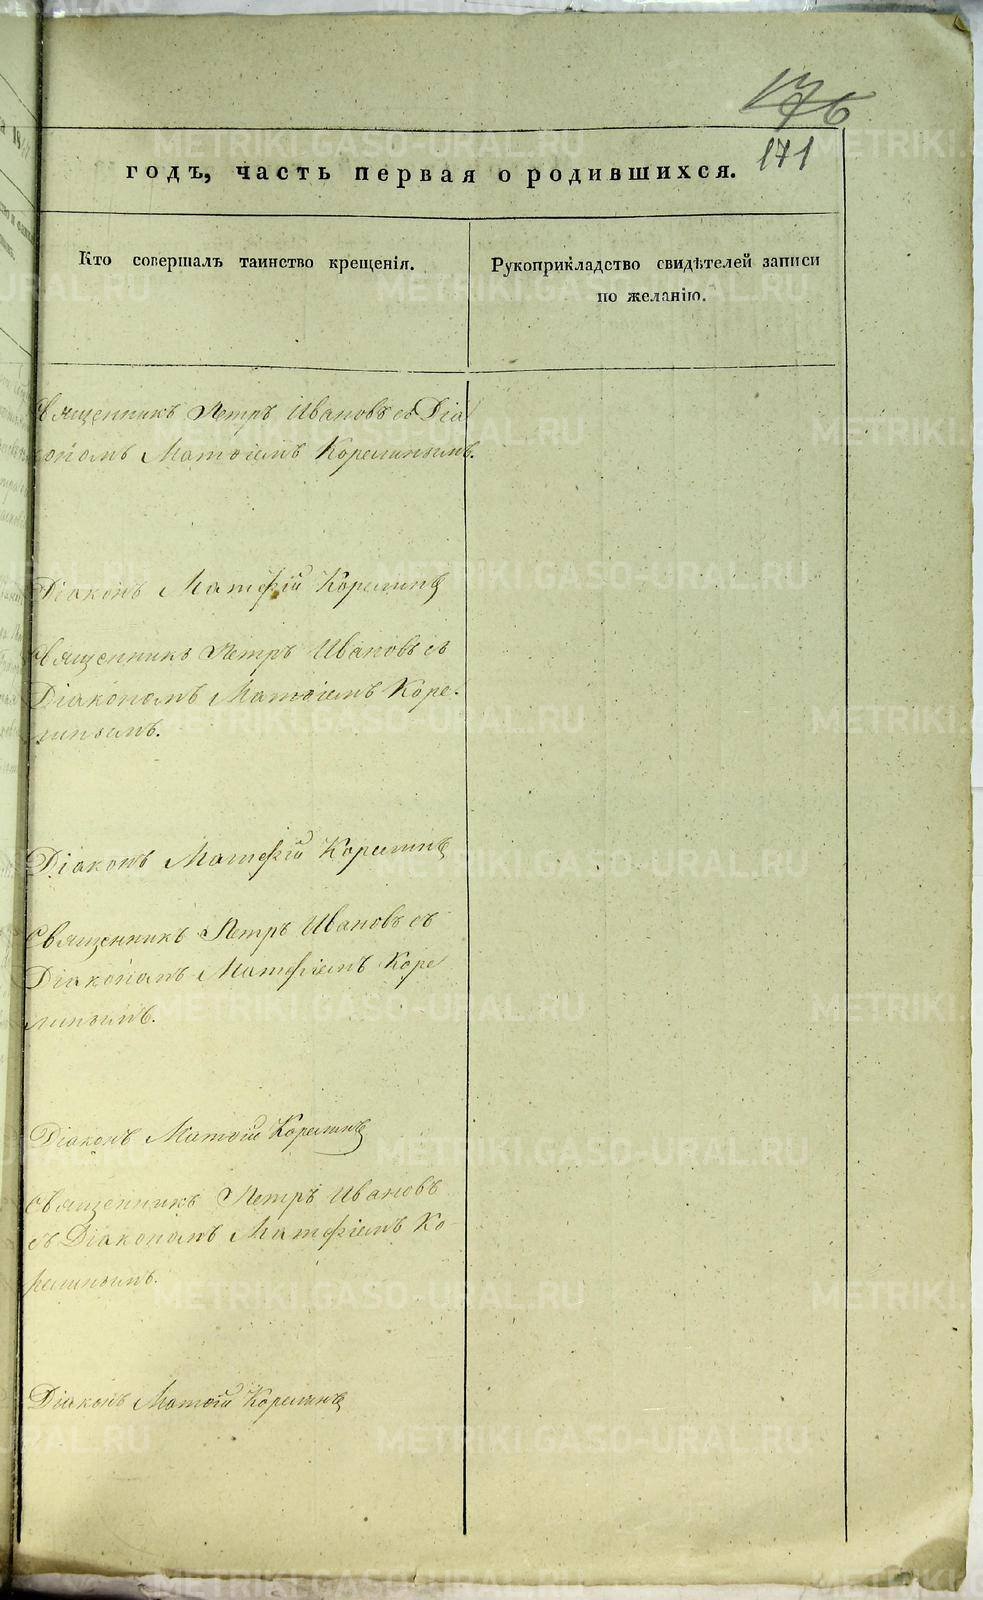 176
171
годъ, часть первая о родившихся.
Кто совершалъ таинство крещенія.
Рукоприкладство свидѣтелей записи
по желанію.
Священникъ Петръ Ивановъ съ Діа
кономъ Матѳіемъ Корелинымъ.
Діаконъ Матфій Корелинъ
Священникъ Петръ Ивановъ съ
Діакономъ Матѳіемъ Коре-
линымъ.
Діаконъ Матфій Корелинъ
Священникъ Петръ Ивановъ съ
Діакономъ Матфіемъ Коре
линымъ.
Діаконъ Матѳій Корелинъ
Священникъ Петръ Ивановъ
съ Діакономъ Матфіемъ Ко-
релинымъ.
Діаконъ Матѳій Корелинъ
METRIKI.GASO-URAL.RU